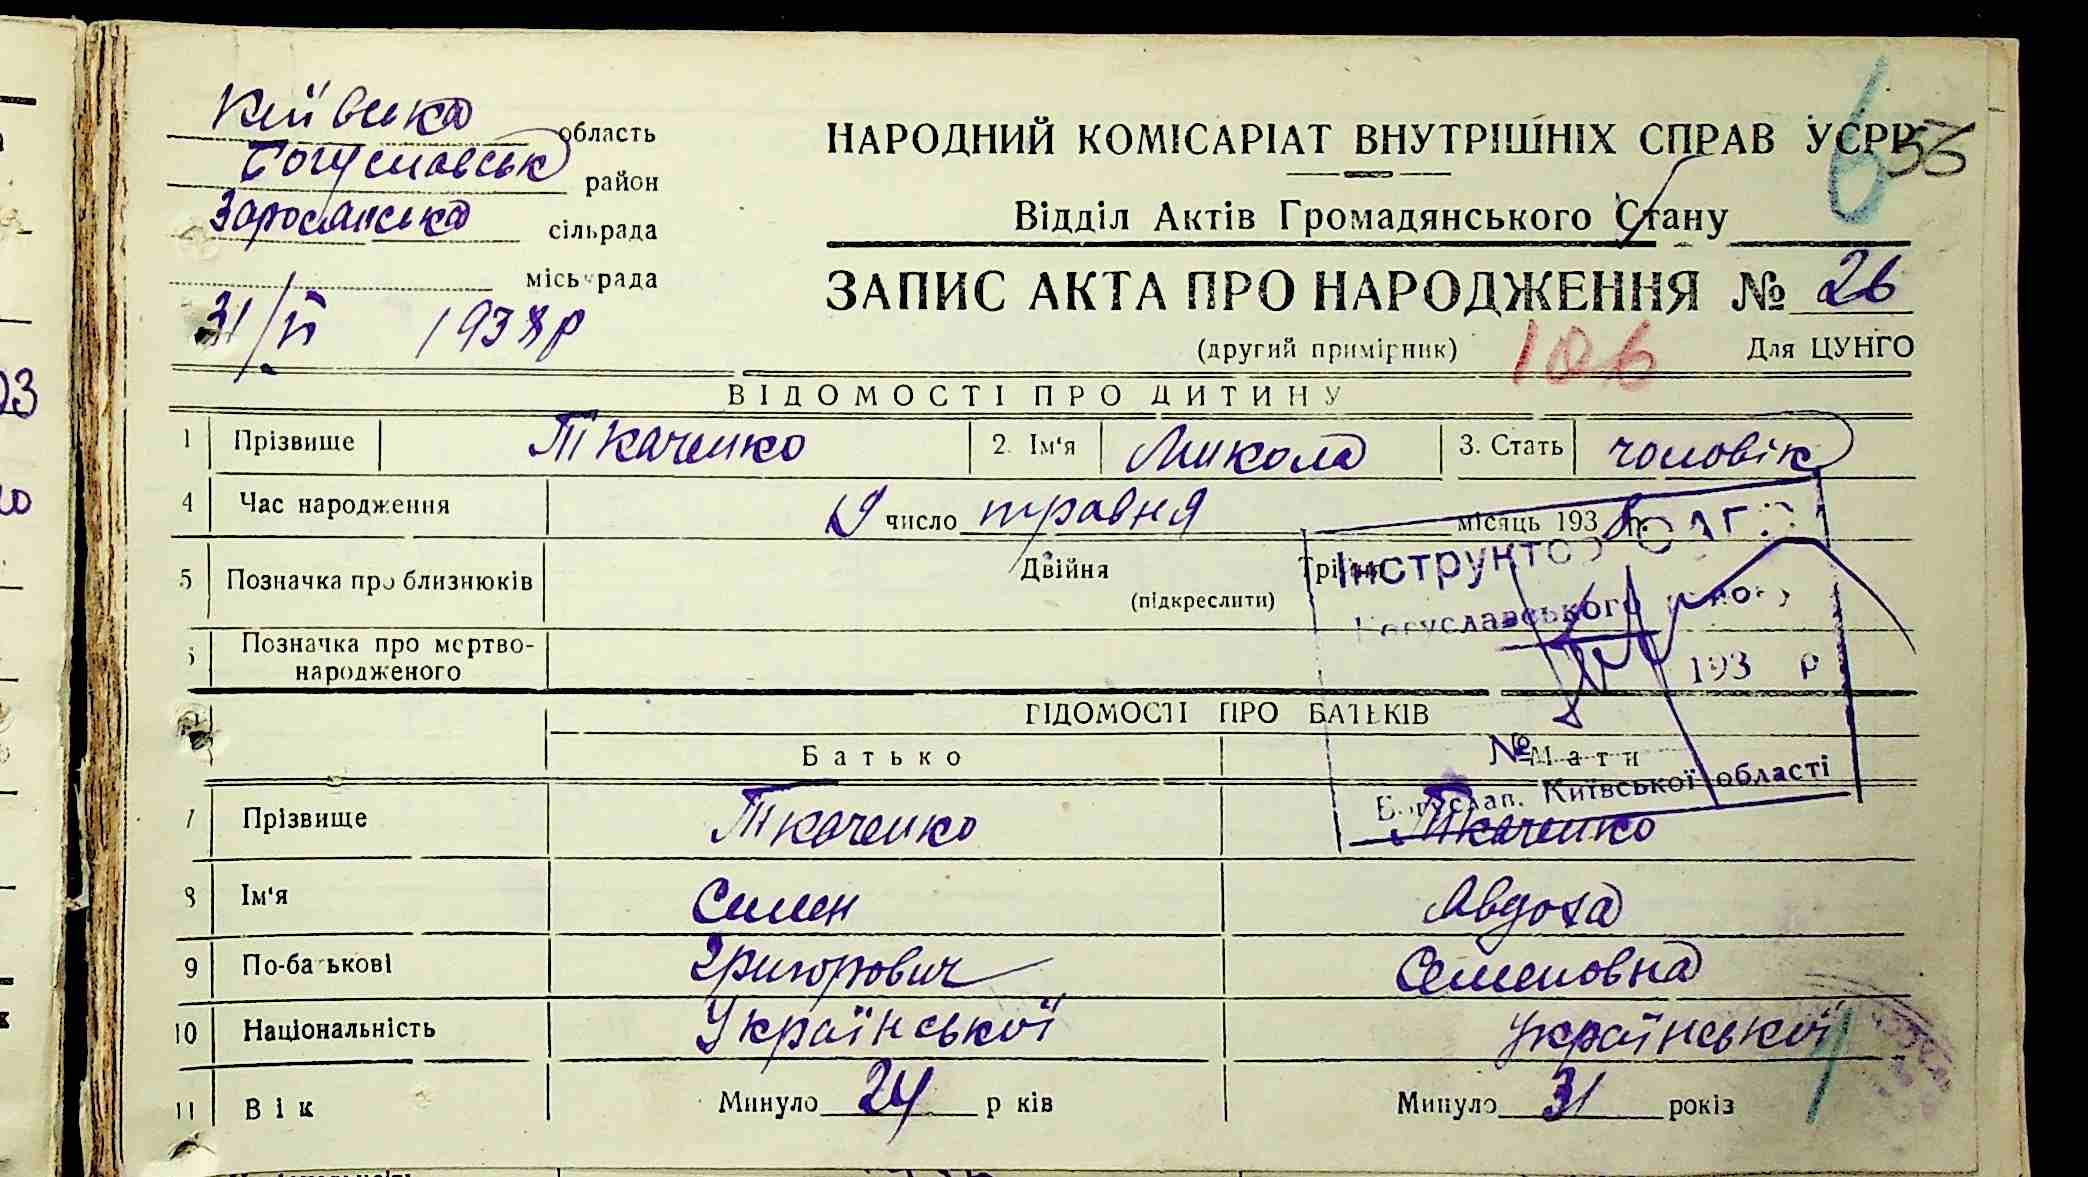 Київська область
Богуславськ район
Заросанська сільрада
міськрада
31/V 1938р
НАРОДНИЙ КОМІСАРІАТ ВНУТРІШНІХ СПРАВ УСРР 53
6
Відділ Актів Громадянського Стану
ЗАПИС АКТА ПРО НАРОДЖЕННЯ № 26
(другий примірник) 106 Для ЦУНГО
ВІДОМОСТІ ПРО ДИТИНУ
1 Прізвище Ткаченко 2. Ім'я Микола 3. Стать чоловік
4 Час народження 19 число травня місяць 193 р.
5 Позначка про близнюків Двійня Трійня
(підкреслити)
6 Позначка про мертво-
народженого
Інструктор ЮАГС
Богуславського району
193 р
№
Богуслав, Київської області
ВІДОМОСТІ ПРО БАТЬКІВ
Батько Мати
7 Прізвище Ткаченко Ткаченко
8 Ім'я Семен Авдоха
9 По-батькові Григорович Семеновна
10 Національність Української Української
11 Вік Минуло 24 років Минуло 31 років